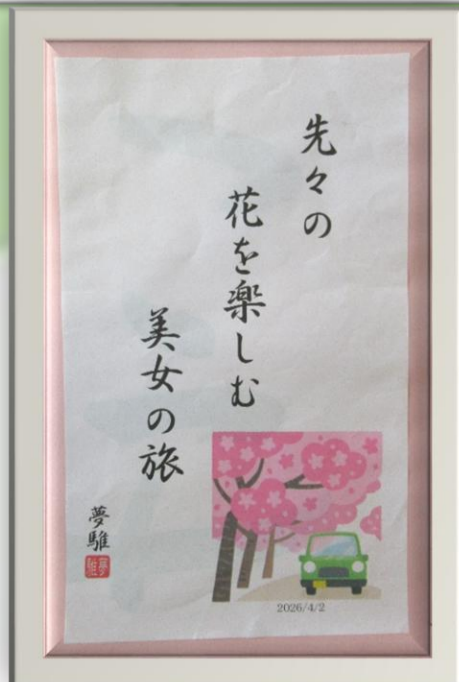 先々の
花を楽しむ
美女の旅
夢騅
2026/4/2